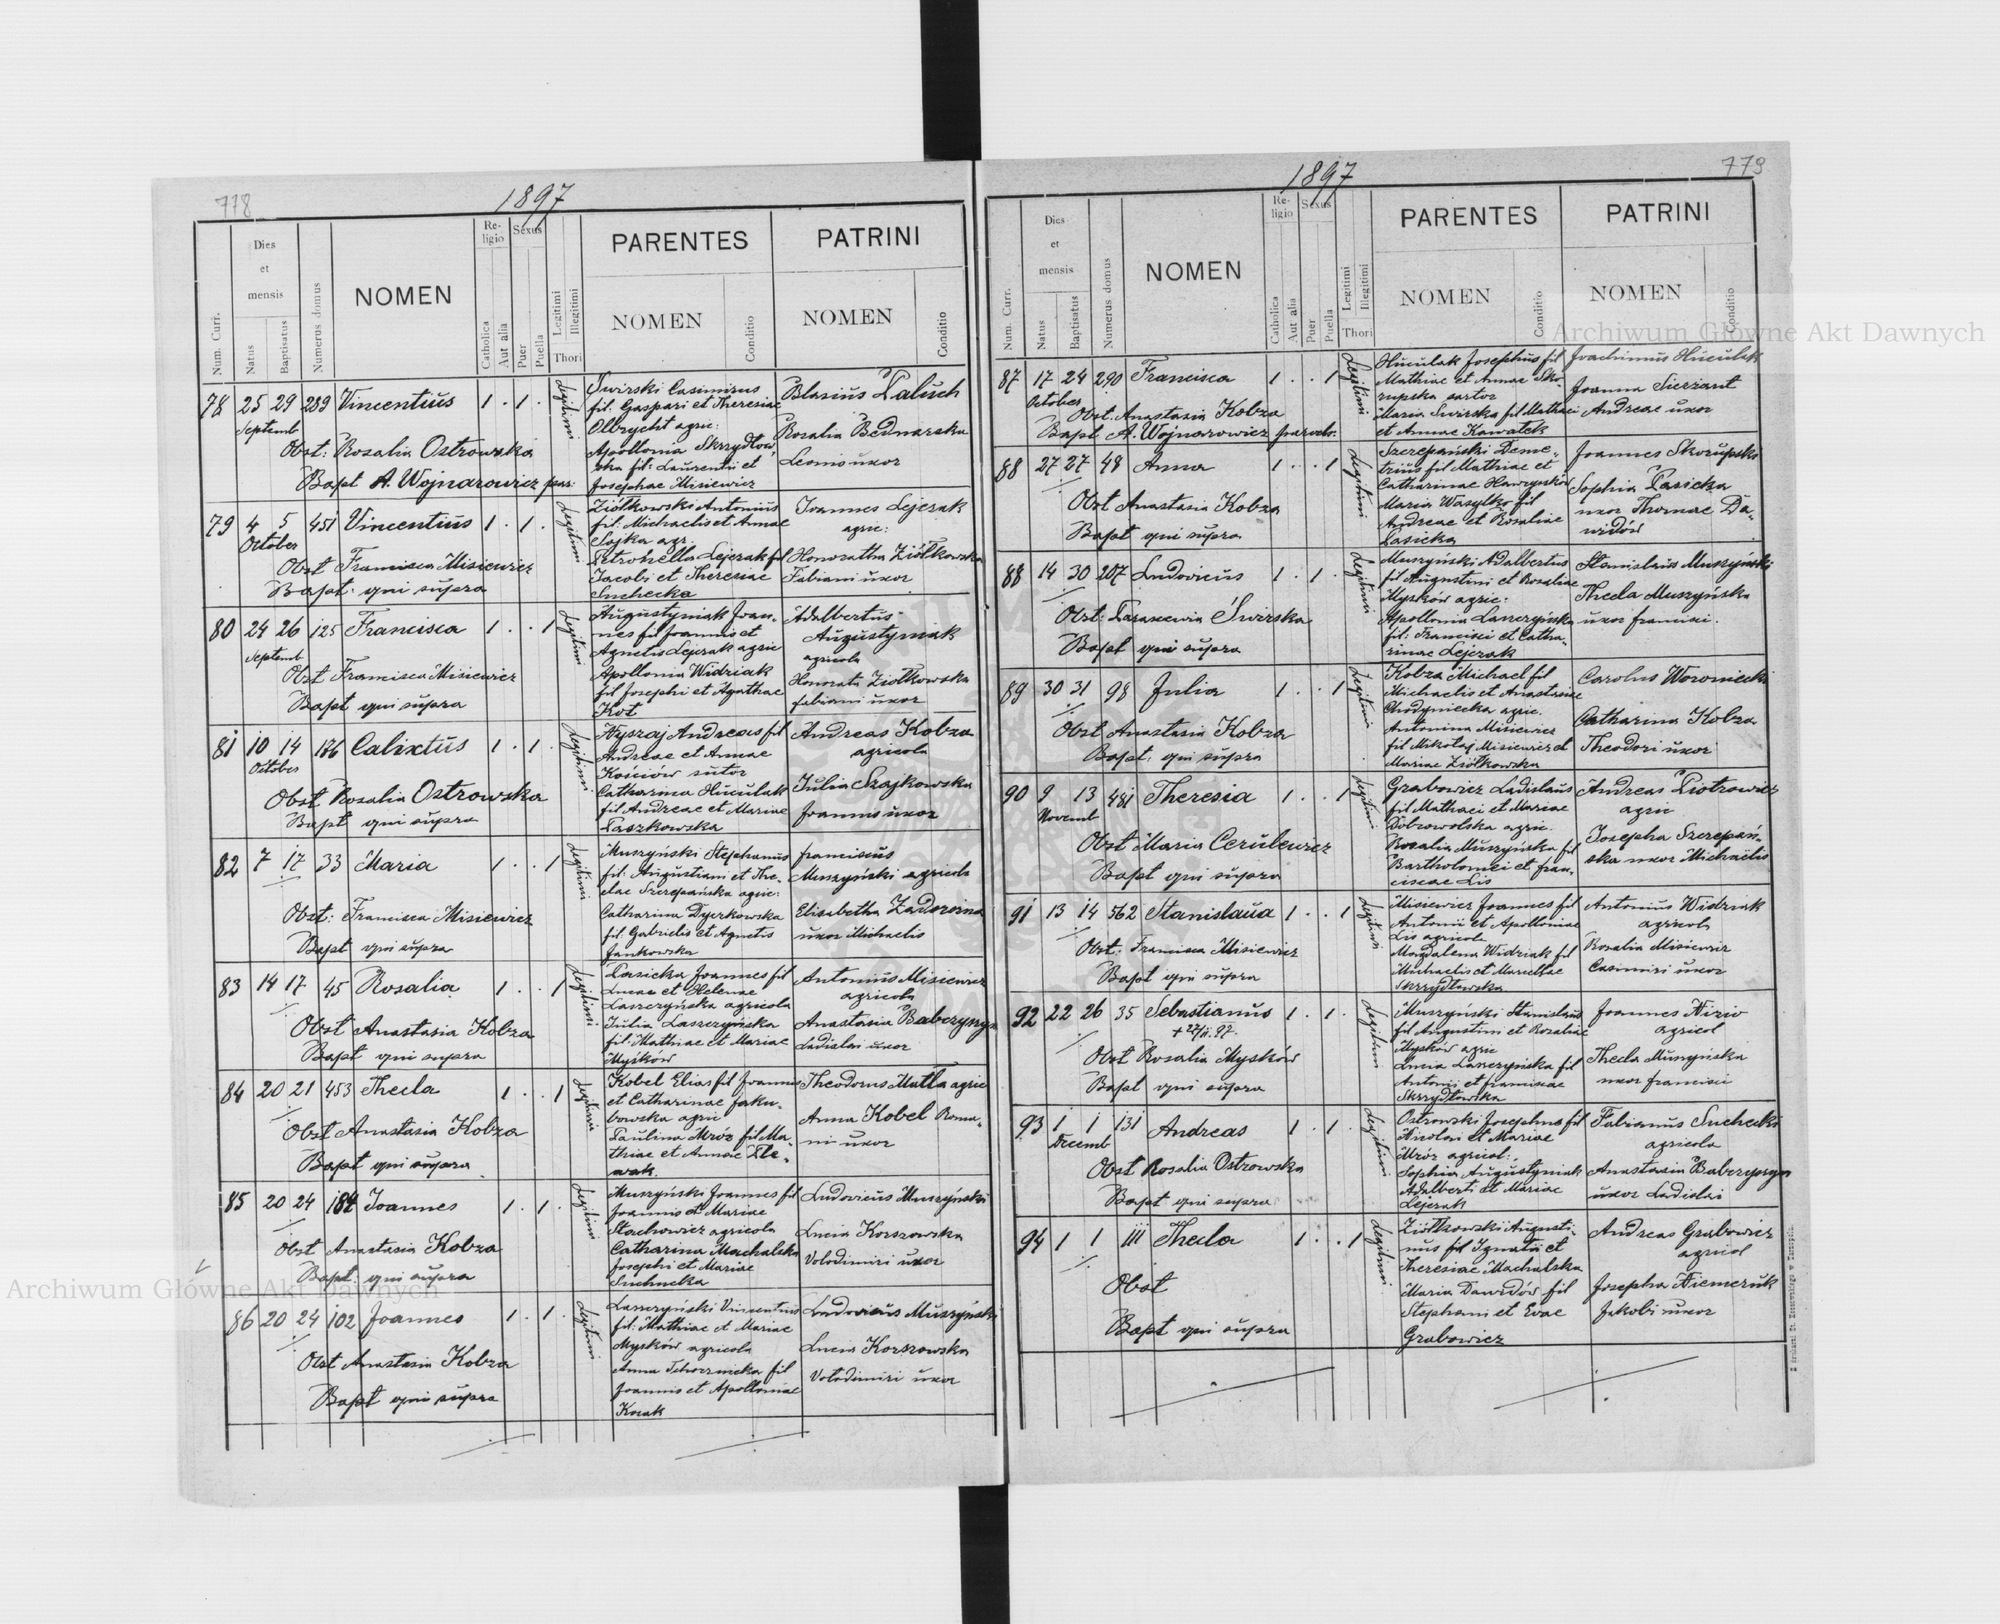 778
1897
Num. Curr.
Dies
et
mensis
Natus
Baptisatus
Numerus domus
NOMEN
Re-
ligio
Catholica
Aut alia
Sexus
Puer
Puella
Legitimi
Illegitimi
Thori
PARENTES
NOMEN
Conditio
PATRINI
NOMEN
Conditio
78 25 29 289 Vincentius 1 . 1 .
Septemb
Obst: Rosalia Ostrowska
Bapt A. Wojnarowicz
Legitimi
Świrski Casimirus
fil: Gaspari et Theresiae
Olbrycht agric:
Apollonia Skrzydłow
ska fil: Laurentii et
Josephae Misiewicz
Blasius Paluch
Rosalia Bednarska
Leonis uxor
79 4 5 451 Vincentius 1 . 1 .
October
Obst Francisca Misiewicz
Bapt. qui supra
Legitimi
Ziółkowski Antonius
fil: Michaelis et Annae
Sojka agr.
Petronella Lejczak fil
Jacobi et Theresiae
Suchecka
Joannes Lejczak
agric:
Honoratha Ziółkowska
Fabiani uxor
80 24 26 125 Francisca 1 . . 1
Septemb
Obst Francisca Misiewicz
Bapt qui supra
Legitimi
Augustyniak Joan-
nes fil Joannis et
Agnetis Lejczak agric
Apollonia Widziak
fil Josephi et Agathae
Kot
Adalbertus
Augustyniak
agricola
Honorata Ziółkowska
Fabiani uxor
81 10 14 176 Calixtus 1 . 1 .
October
Obst Rosalia Ostrowska
Bapt qui supra
Legitimi
Wyszaj Andreas fil
Andreae et Annae
Kościów sutor
Catharina Huculak
fil Andreae et Mariae
Paszkowska
Andreas Kobza
agricola
Julia Szajkowska
Joannis uxor
82 7 17 33 Maria 1 . . 1
Obst: Francisca Misiewicz
Bapt qui supra
Legitimi
Muszyński Stephanus
fil: Augustiani et The-
clae Szczepańska agric:
Catharina Dyczkowska
fil. Gabrielis et Agnetis
Jankowska
Franciscus
Muszyński agricola
Elisabetha Zadorożna
uxor Michaelis
83 14 17 45 Rosalia 1 . . 1
Obst Anastasia Kobza
Bapt qui supra
Legitimi
Łasicka Joannes fil
Lucae et Helenae
Laszczyńska agricola
Julia Laszczyńska
fil: Mathiae et Mariae
Myśków
Antonius Misiewicz
agricola
Anastasia Babczyszyn
Ladislai uxor
84 20 21 453 Thecla 1 . . 1
Obst Anastasia Kobza
Bapt qui supra
Legitimi
Kobel Elias fil Joannis
et Catharinae Jaku-
bowska agric
Paulina Mróz fil Ma-
thiae et Annae
Theodorus Matla agric
Anna Kobel Roma-
ni uxor
85 20 24 184 Joannes 1 . 1 .
Obst Anastasia Kobza
Bapt: qui supra
Legitimi
Muszyński Joannes fil
Joannis et Mariae
Stachowicz agricola
Catharina Machalska
Josephi et Mariae
Suchecka
Ludovicus Muszyński
Lucia Korszowska
Volodimiri uxor
86 20 24 102 Joannes 1 . 1 .
Obst Anastasia Kobza
Bapt qui supra
Legitimi
Laszczyński Vincentius
fil: Mathiae et Mariae
Myśków agricola
Anna Tchorznicka fil
Joannis et Apolloniae
Kozak
Ludovicus Muszyński
Lucia Korszowska
Volodimiri uxor
779
1897
Num. Curr.
Dies
et
mensis
Natus
Baptisatus
Numerus domus
NOMEN
Re-
ligio
Catholica
Aut alia
Sexus
Puer
Puella
Legitimi
Illegitimi
Thori
PARENTES
NOMEN
Conditio
PATRINI
NOMEN
Conditio
87 17 24 290 Francisca 1 . . 1
October
Obst. Anastasia Kobza
Bapt A. Wojnarowicz paroch.
Legitimi
Huculak Josephus fil
Mathiae et Annae Sko-
rupska sartor
Maria Świrska fil Mathaei
et Annae Kawałek
Joachimus Huculak
Joanna Sierżant
Andreae uxor
88 27 27 48 Anna 1 . . 1
Obst Anastasia Kobza
Bapt qui supra
Legitimi
Szczepański Deme-
trius fil Mathiae et
Catharinae Hawryszków
Maria Wasylko fil
Andreae et Rosaliae
Łasicka
Joannes Skorupski
Sophia Łasicka
uxor Thomae Da-
widów
88 14 30 207 Ludovicus 1 . 1 .
Obst: Parascevia Świrska
Bapt qui supra
Legitimi
Muszyński Adalbertus
fil Augustini et Rosaliae
Myśków agric:
Apollonia Laszczyńska
fil: Francisci et Catha-
rinae Lejczak
Stanislaus Muszyński
Thecla Muszyńska
uxor Francisci.
89 30 31 98 Julia 1 . . 1
Obst Anastasia Kobza
Bapt. qui supra
Legitimi
Kobza Michael fil
Michaelis et Anastasiae
Chodyniecka agric.
Antonina Misiewicz
fil Mikołaj Misiewicz et
Mariae Ziółkowska
Carolus Woroniecki
Catharina Kobza
Theodori uxor
90 9 13 481 Theresia 1 . . 1
Novemb
Obst Maria Cerulewicz
Bapt qui supra
Legitimi
Grabowicz Ladislaus
fil Mathaei et Mariae
Dobrowolska agric.
Rosalia Muszyńska fil
Bartholomei et Fran-
ciscae Lis
Andreas Piotrowicz
agric
Josepha Szczepań-
ska uxor Michaelis
91 13 14 562 Stanislava 1 . . 1
Obst: Francisca Misiewicz
Bapt qui supra
Legitimi
Misiewicz Joannes fil
Antonii et Apolloniae
Lis agricola
Magdalena Widziak fil
Michaelis et Marcellae
Skrzydłowska
Antonius Widziak
agricola
Rosalia Misiewicz
Casimiri uxor
92 22 26 35 Sebastianus 1 . 1 .
Obst Rosalia Myśków
Bapt qui supra
Legitimi
Muszyński Stanislaus
fil Augustini et Rosaliae
Myśków agric
Lucia Laszczyńska fil
Antonii et Franciscae
Skrzydłowska
Joannes Nizio
agricol
Thecla Muszyńska
uxor Francisci
93 1 1 131 Andreas 1 . 1 .
Decemb
Obst Rosalia Ostrowska
Bapt qui supra
Legitimi
Ostrowski Josephus fil
Nicolai et Mariae
Mróz agricol:
Sophia Augustyniak
Adalberti et Mariae
Lejczak
Fabianus Suchecki
agricola
Anastasia Babczyszyn
uxor Ladislai
94 1 1 111 Thecla 1 . . 1
Obst
Bapt qui supra
Legitimi
Ziółkowski Augusti-
nus fil Ignatii et
Theresiae Machalska
Maria Dawidów fil
Stephani et Evae
Grabowicz
Andreas Grabowicz
agricol
Josepha Niemczuk
Jakobi uxor
Archiwum Główne Akt Dawnych
Archiwum Główne Akt Dawnych